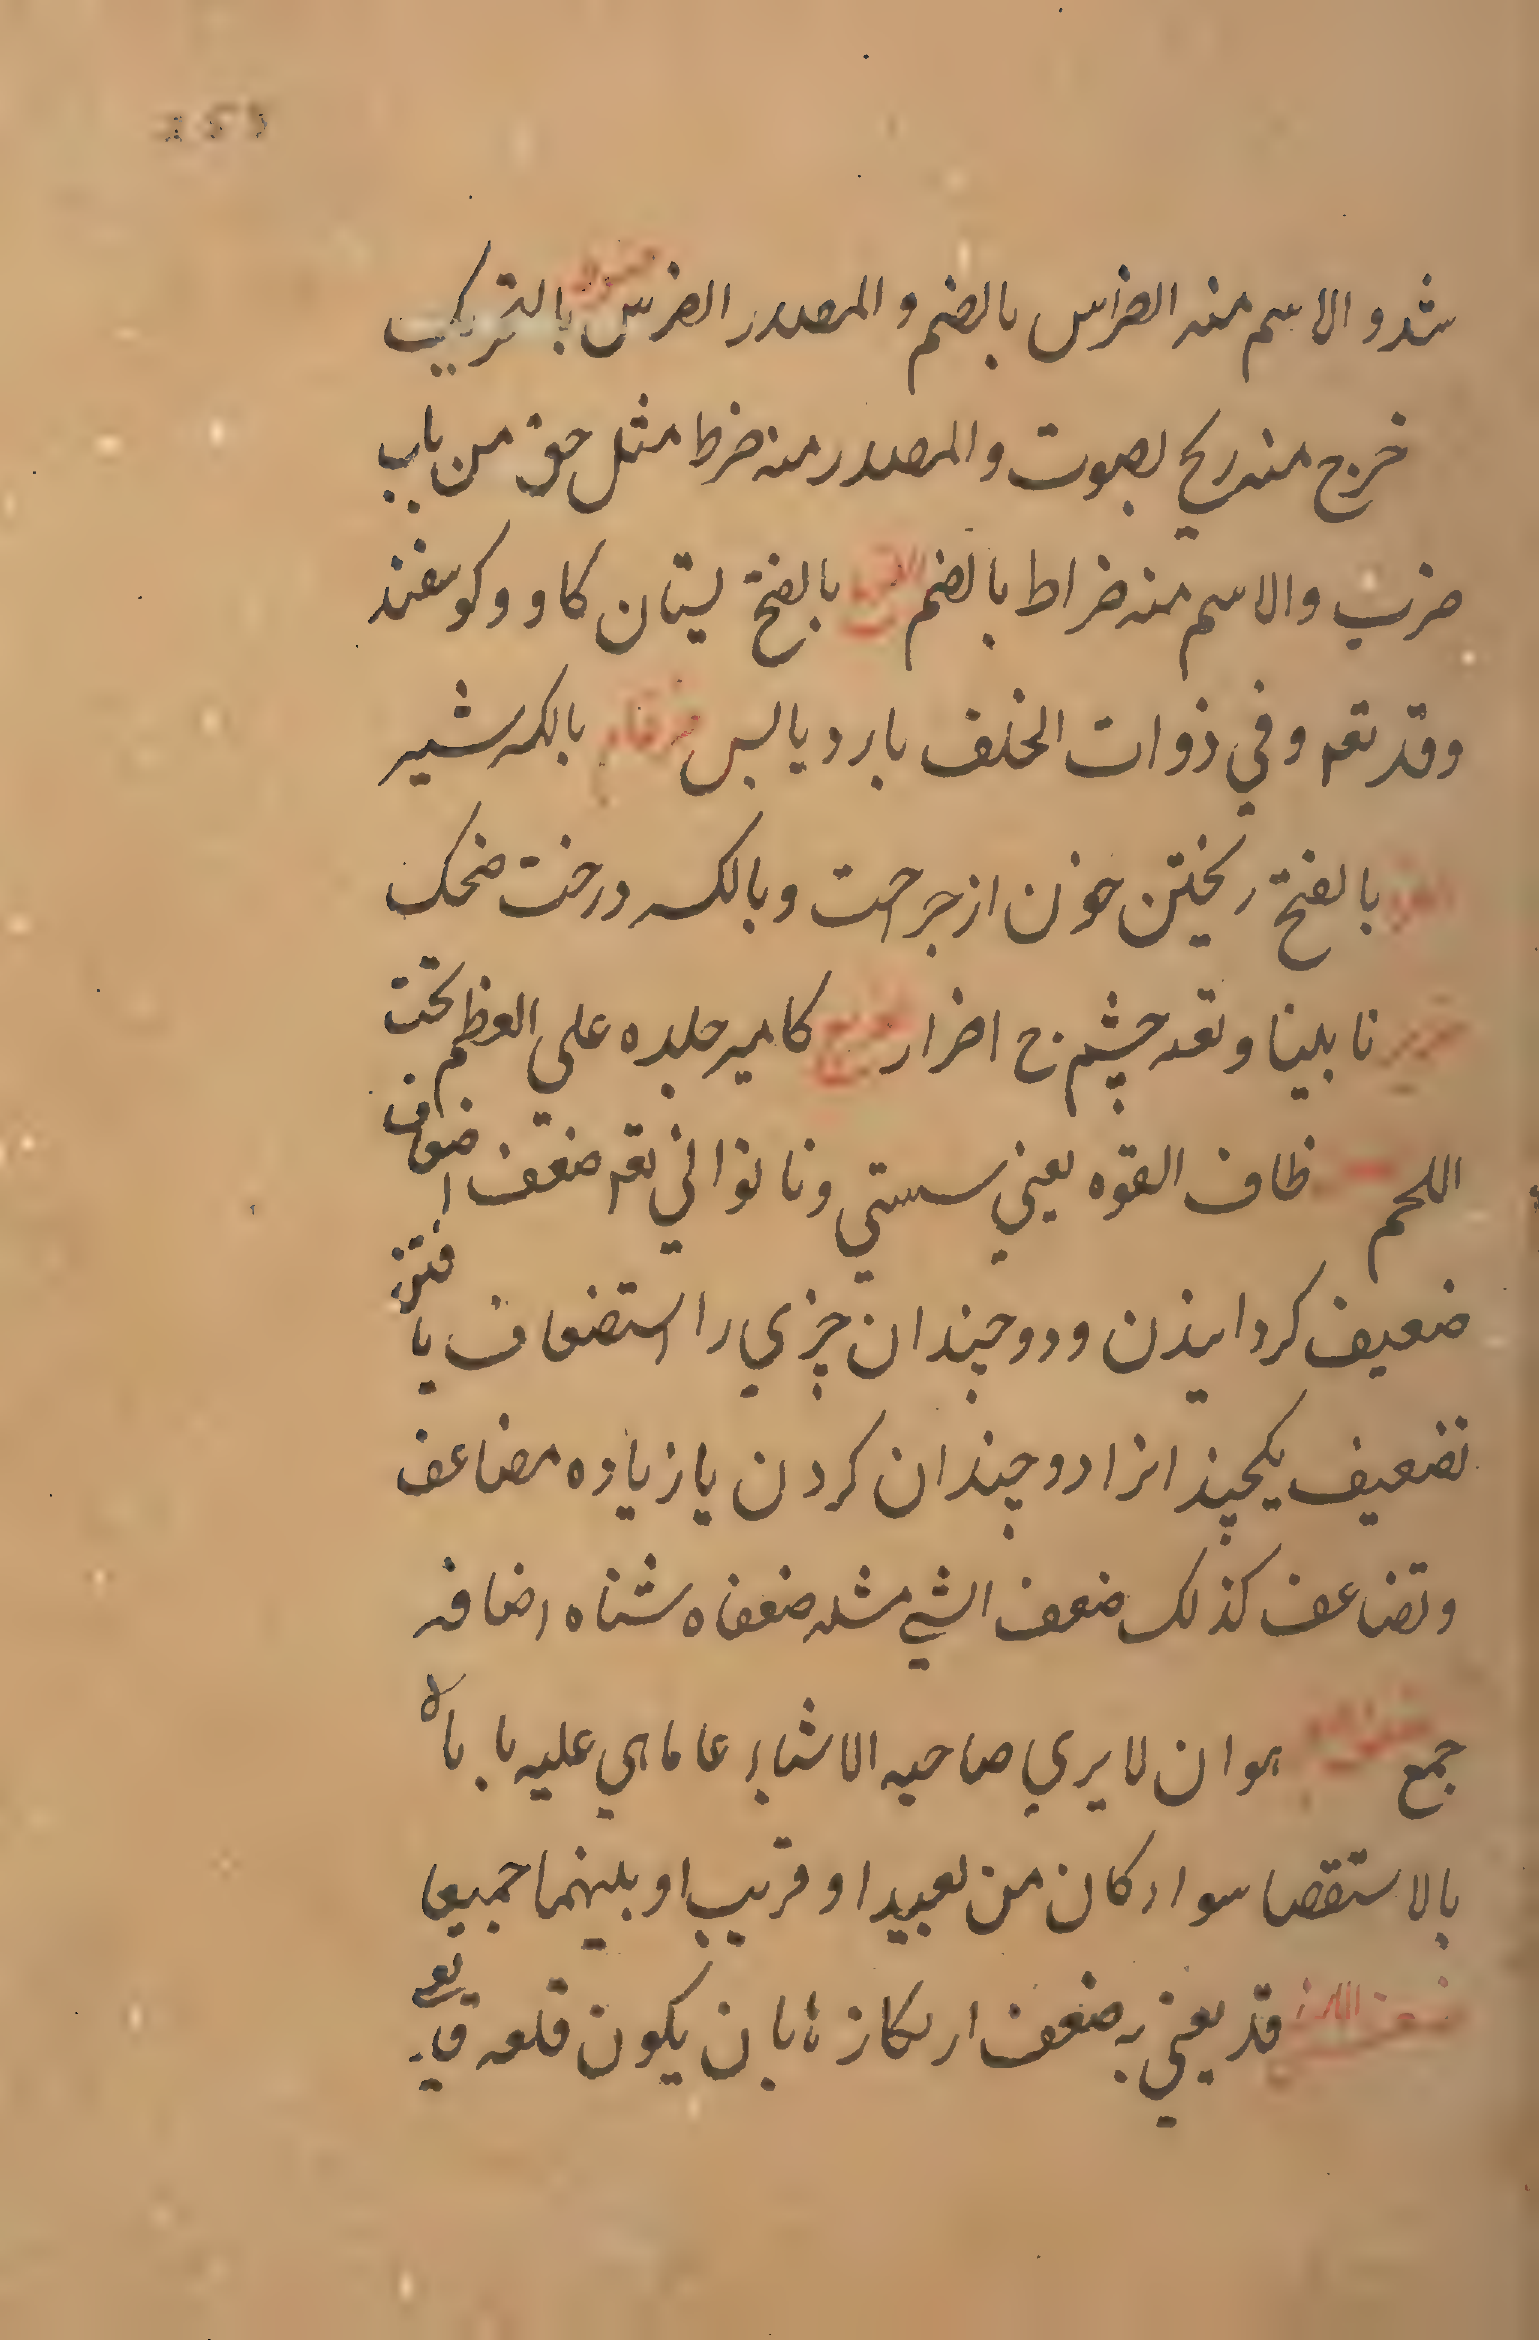 شد و الاسم منه الضراس بالضم و المصدر الضرس بالتركيب
خرج منه ريح بصوت و المصدر منه ضرط مثل حق من باب
ضرب والاسم منه ضراط بالضم بالفتح پستان كاو و كوسفند
وقد تعم وفي ذوات الخلف بارد يابس ضرغام بالكسر شير
بالفتح ريختن خون از جراحت وبالكسر درخت ضحك
ضرير نابينا و نعه چشم ج اضرار كامير جلده علي العظم تحت
اللحم ظاف القوه يعني سستي و ناتواني نعه ضعف اضعاف
ضعيف كردانيدن و دو چندان چيزي را استضعاف يافتن
تضعيف يكچند انرا دو چندان كردن يا زياده مضاعف
وتضاعف كذلك ضعف الشي مثله ضعفاه مثناه اضافه
جمع هو ان لا يري صاحبه الاشياء عاماهي عليه با
بالاستقصا سواء كان من بعيد او قريب او بينهما جميعا
قد يعني به ضعف اركازها بان يكون قلعه